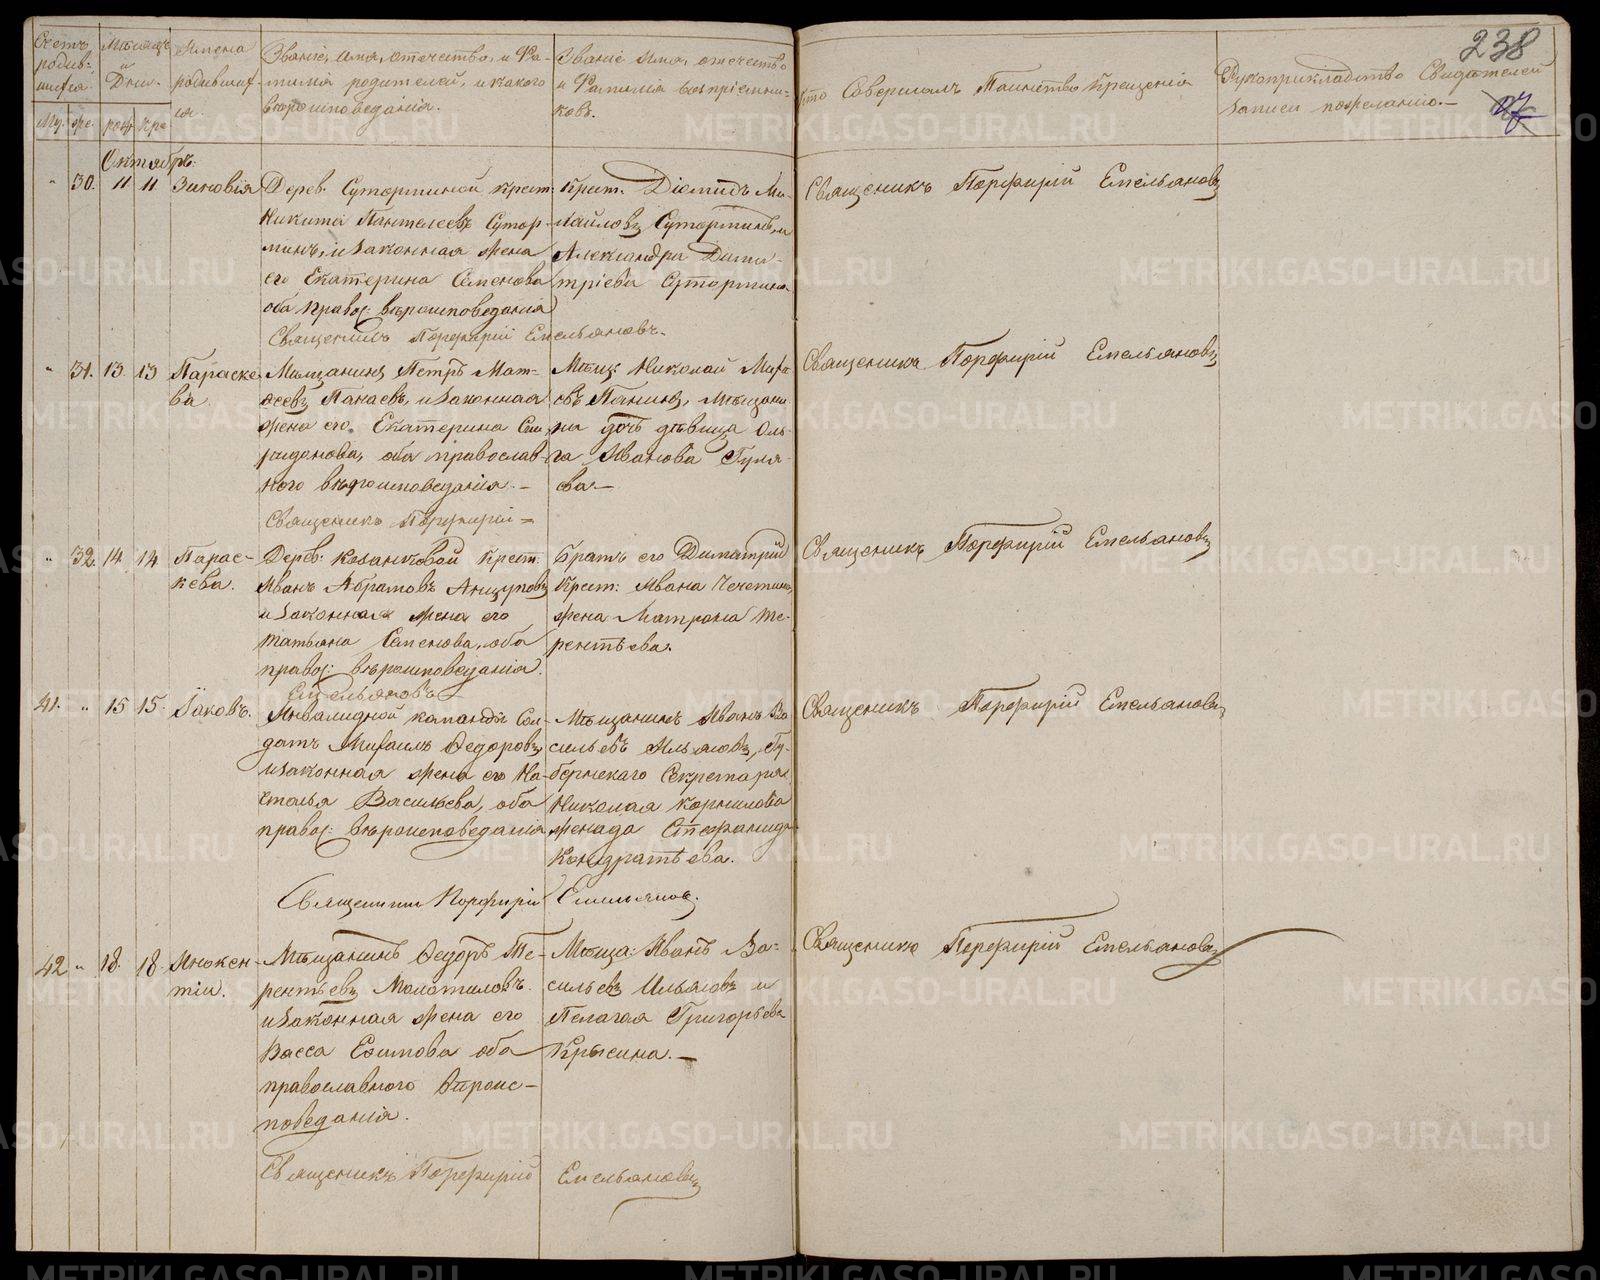 238
Счетъ родив-шихся.
Мѣсяцъ и День.
Имена родившихся.
Званіе, имя, отчество, и Фа-
милія родителей, и какого
вѣроисповеданія.
Званіе имя, отечество
и Фамилія воспріемни-
ковъ.
Кто Совершалъ Таинство Крещенія
Рукоприкладство Свидѣтелей
записи по желанію.
Му. же. рож кре
Октябрь.
" 30. 11 11 Зиновія
Дерев. Суторминой крест.
Никита Пантелеевъ Сутор-
минъ, и законная жена
его Екатерина Семенова
оба правос: вѣроисповеданія
Священникъ Порфирій Емельяновъ.
Крест. Діомидъ Ми-
хайловъ Суторминъ, и
Александра Дими-
тріева Сутормина.
Священикъ Порфирій Емельяновъ
" 31. 13 13 Параске-
ва
Мѣщанинъ Петръ Мат-
ѳеевъ Панаевъ, и законная
жена его Екатерина Спи-
ридонова, оба православ-
ного вѣроисповеданія.
Священикъ Порфирій
Мѣщ. Николай
евъ Панинъ, Мѣщани-
на дочь дѣвица Оль-
га Иванова
ева
Священикъ Порфирій Емельяновъ
" 32. 14. 14 Парас-
кева.
Дерев. Казанковой Крест.
Иванъ Абрамовъ Анцуповъ
и законная жена его
татьяна Семенова, оба
правос: вѣроисповеданія.
Емельяновъ
Братъ его Димитрій
Крест: Ивана
жена Матрона Те-
рентьева.
Священикъ Порфирій Емельяновъ
41. " 15 15. Іаковъ.
Инвалидной команды Сол-
датъ Михаилъ Ѳедоровъ
и законная жена его На-
талья Васильева, оба
правос: вѣроисповеданія
Священникъ Порфирій Емельяновъ.
Мѣщанинъ Иванъ Ва-
сильевъ Ильяловъ, Гу-
бернскаго Секретаря
Николая Корнилова
жена Стефанида
Кондратьева.
Священикъ Порфирій Емельяновъ
42 " 18. 18. Инокен-
тіи.
Мѣщанинъ Ѳедоръ Те-
рентьевъ Молотиловъ
и законная жена его
Васса Ефимова оба
православного вѣроис-
поведанія.
Священикъ Порфирій Емельяновъ
Мѣща: Иванъ Ва-
сильевъ Ильяловъ и
Пелагая Григорьева
Крысина.
Священикъ Порфирій Емельяновъ
METRIKI.GASO-URAL.RU